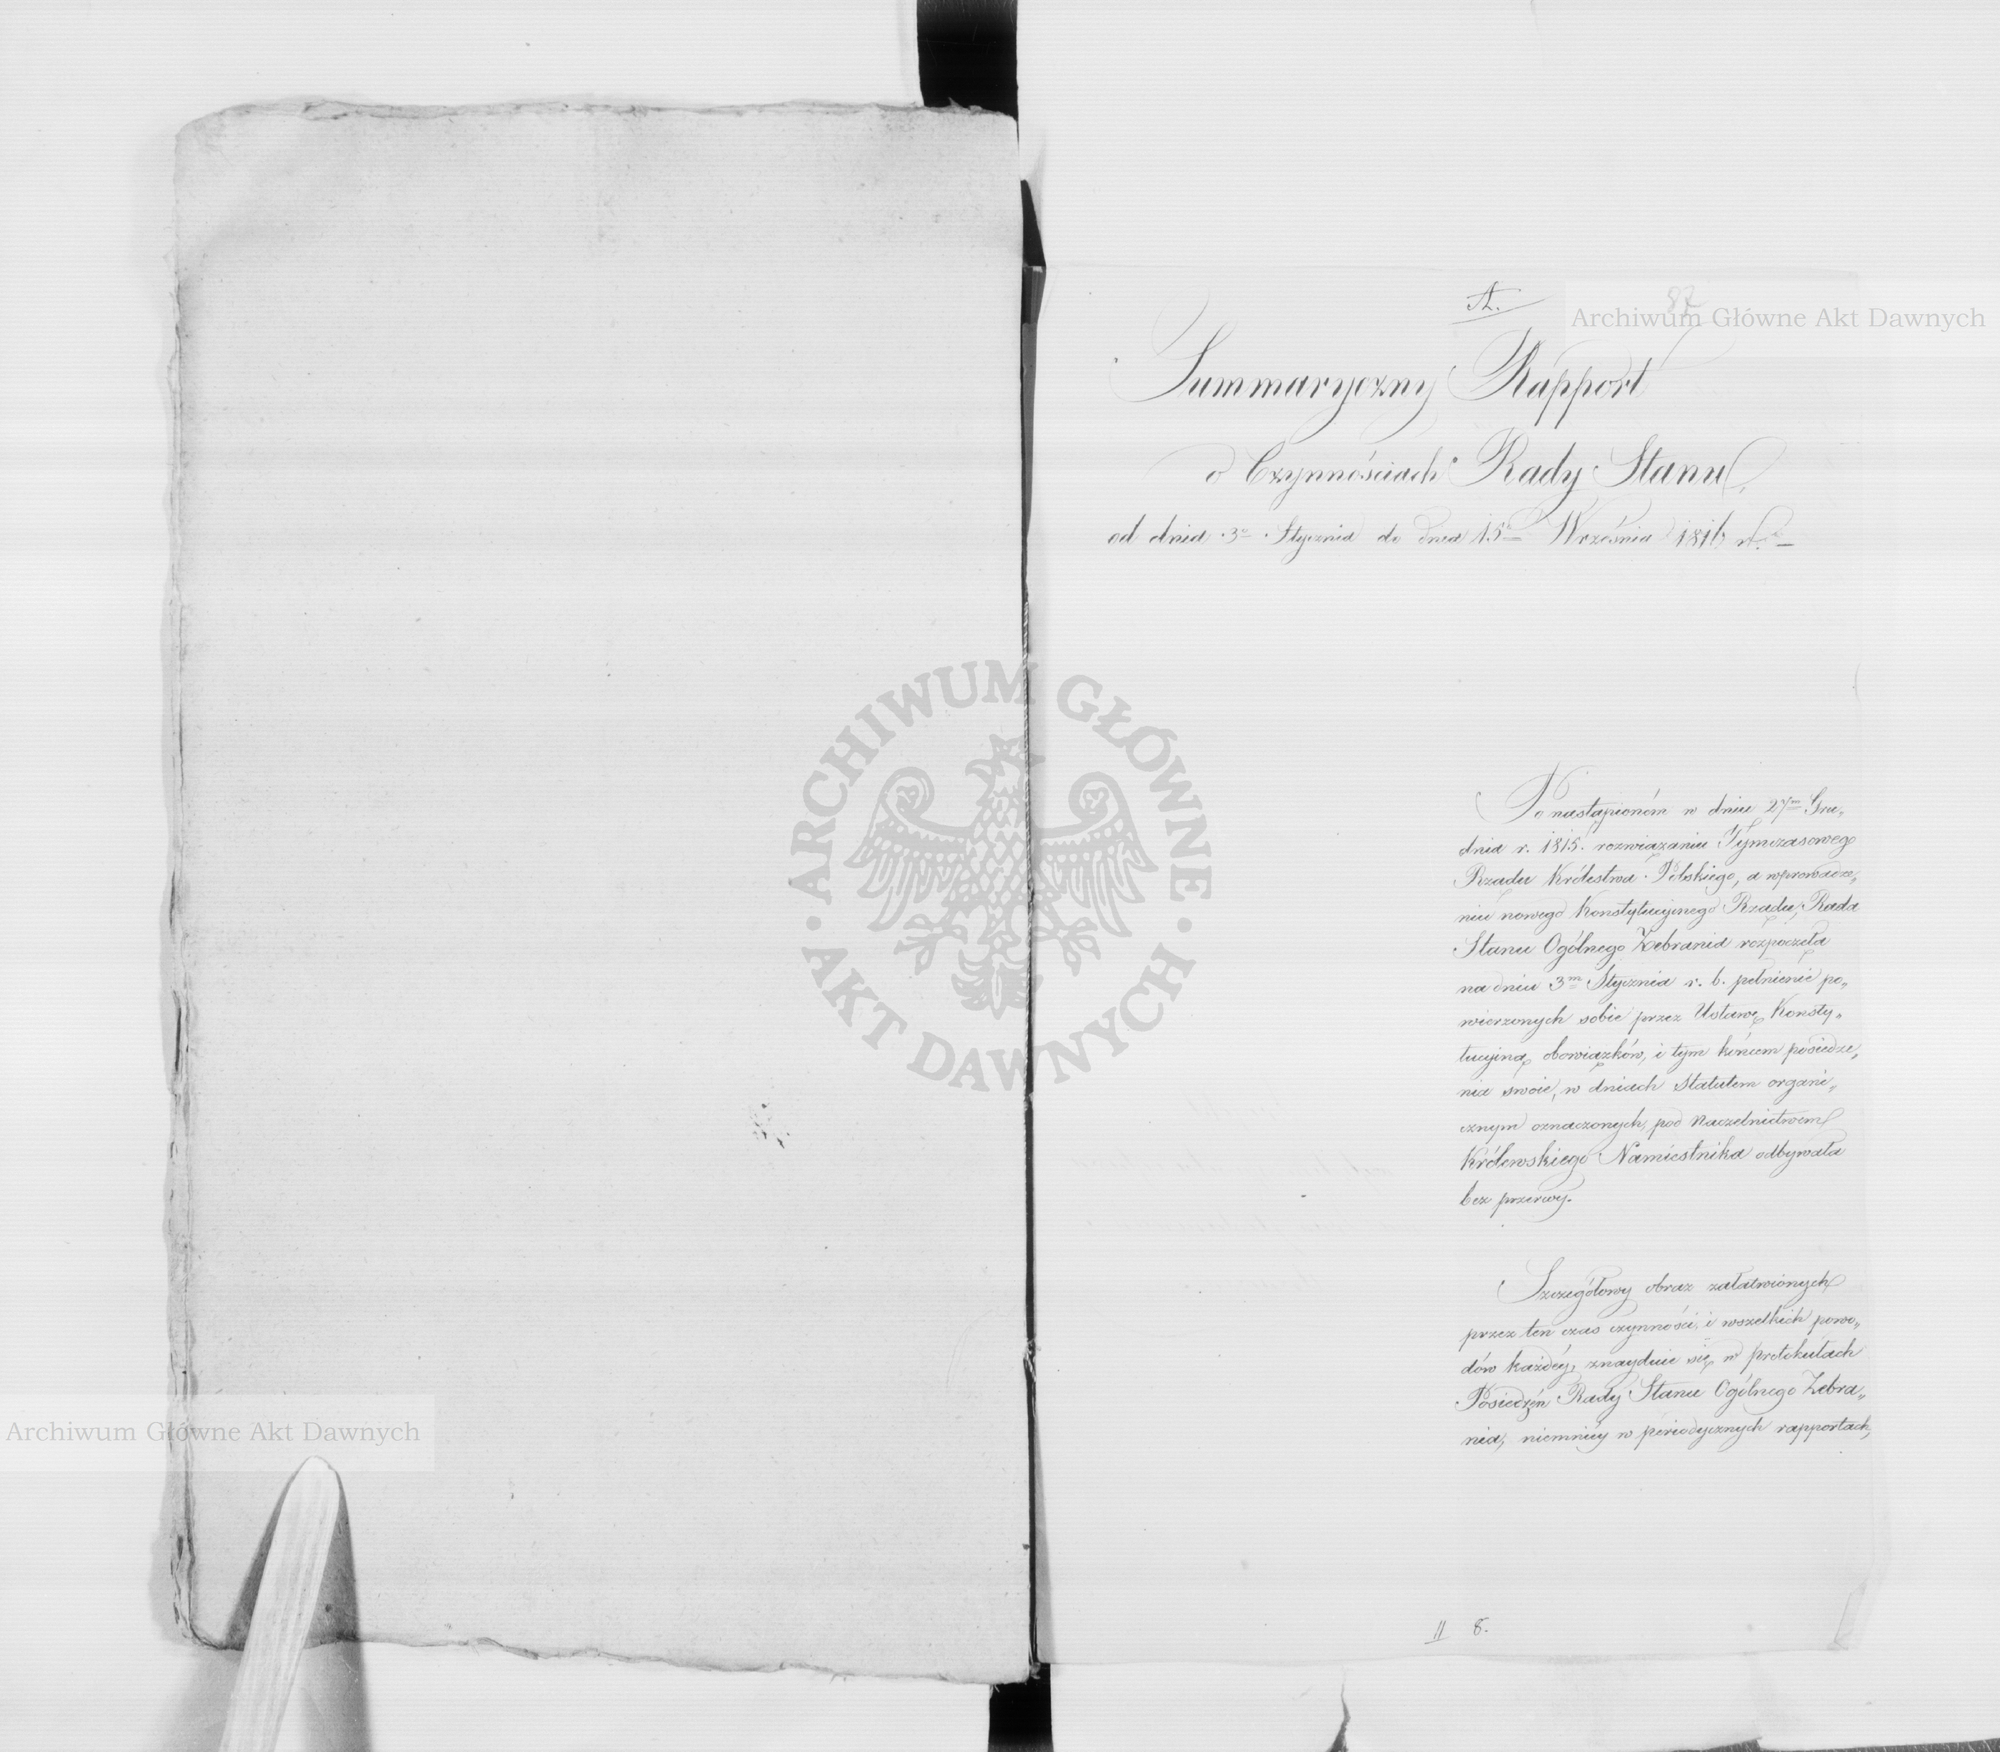 A.
87
Archiwum Główne Akt Dawnych
Summaryczny Rapport
o Czynnościach Rady Stanu
od dnia 3º Stycznia do dnia 15º Września 1816 r.
ARCHIWUM GŁÓWNE · AKT DAWNYCH ·
Po nastąpioném w dniu 27m Gru„
dnia r. 1815. rozwiązaniu Tymczasowego
Rządu Królestwa Polskiego, a wprowadze„
niu nowego Konstytucyjnego Rządu, Rada
Stanu Ogólnego Zebrania rozpoczęła
na dniu 3m Stycznia r. b. pełnienie po„
wierzonych sobie przez Ustawę Konsty„
tucyjną obowiązków, i tym końcem posiedze„
nia swoie, w dniach Statutem organi„
cznym oznaczonych, pod Naczelnictwem
Królewskiego Namiestnika odbywała
bez przerwy.
Szczegółowy obraz załatwionych
przez ten czas czynności, i wszelkich powo„
dów każdéy, znayduie się w protokułach
Posiedzeń Rady Stanu Ogólnego Zebra„
nia, niemniéy w periodycznych rapportach,
Archiwum Główne Akt Dawnych
II 8.